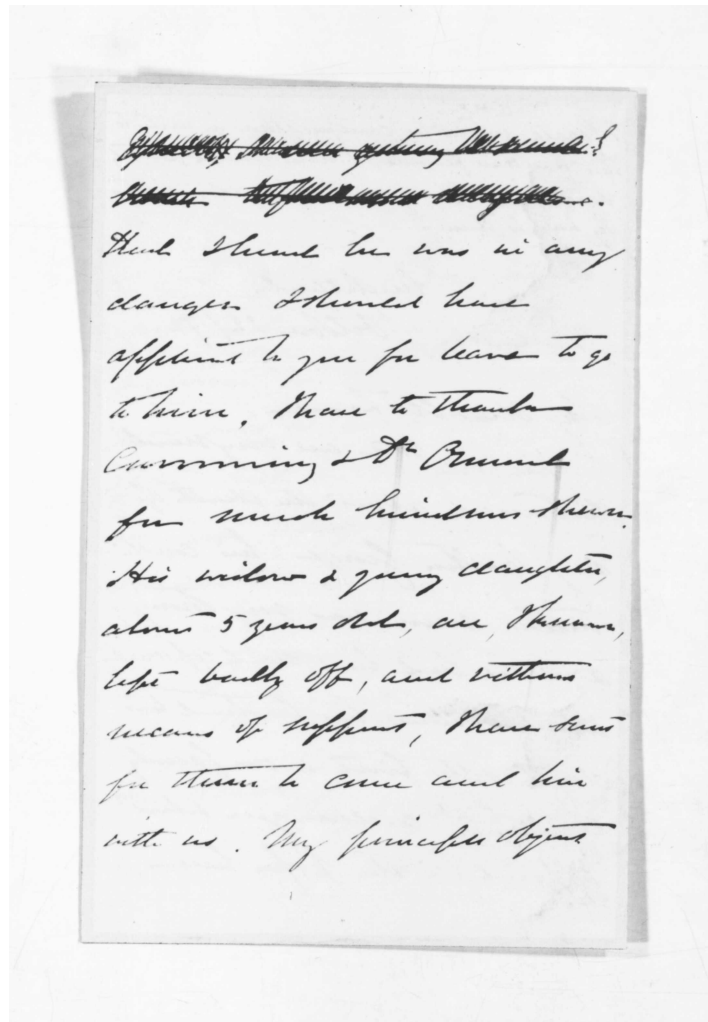 Had I heard he was in any
danger I should have
applied to you for leave to go
to him. I have to thank
Cumming & Dr Ormond
for much kindness shewn.
His widow & young daughter,
about 5 years old, are, I know,
left badly off, and without
means of support, I have sent
for them to come and live
with us. My principle object